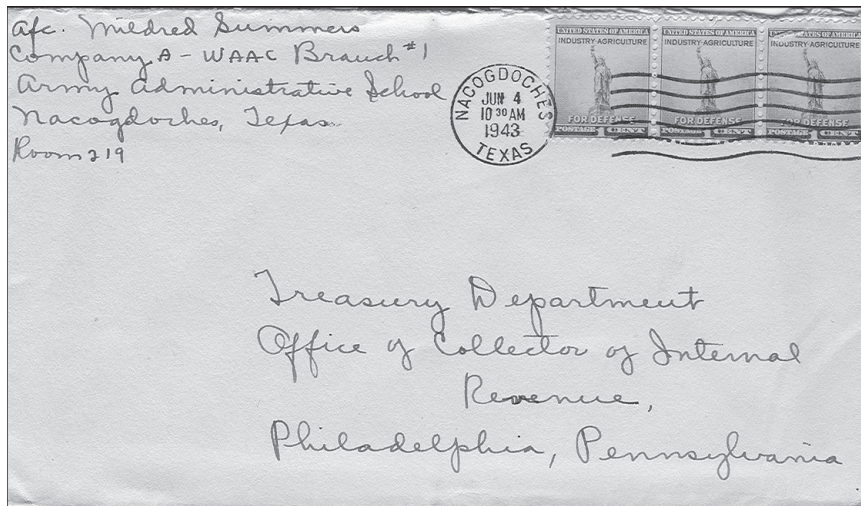 Afc. Mildred Summers
Company A - WAAC Branch #1
Army Administrative School
Nacogdoches, Texas
Room 219
NACOGDOCHES
JUN 4
10 30 AM
1943
TEXAS
UNITED STATES OF AMERICA
INDUSTRY-AGRICULTURE
FOR DEFENSE
POSTAGE 1 CENT
UNITED STATES OF AMERICA
INDUSTRY-AGRICULTURE
FOR DEFENSE
POSTAGE 1 CENT
UNITED STATES OF AMERICA
INDUSTRY-AGRICULTURE
FOR DEFENSE
POSTAGE 1 CENT
Treasury Department
Office of Collector of Internal
Revenue,
Philadelphia, Pennsylvania